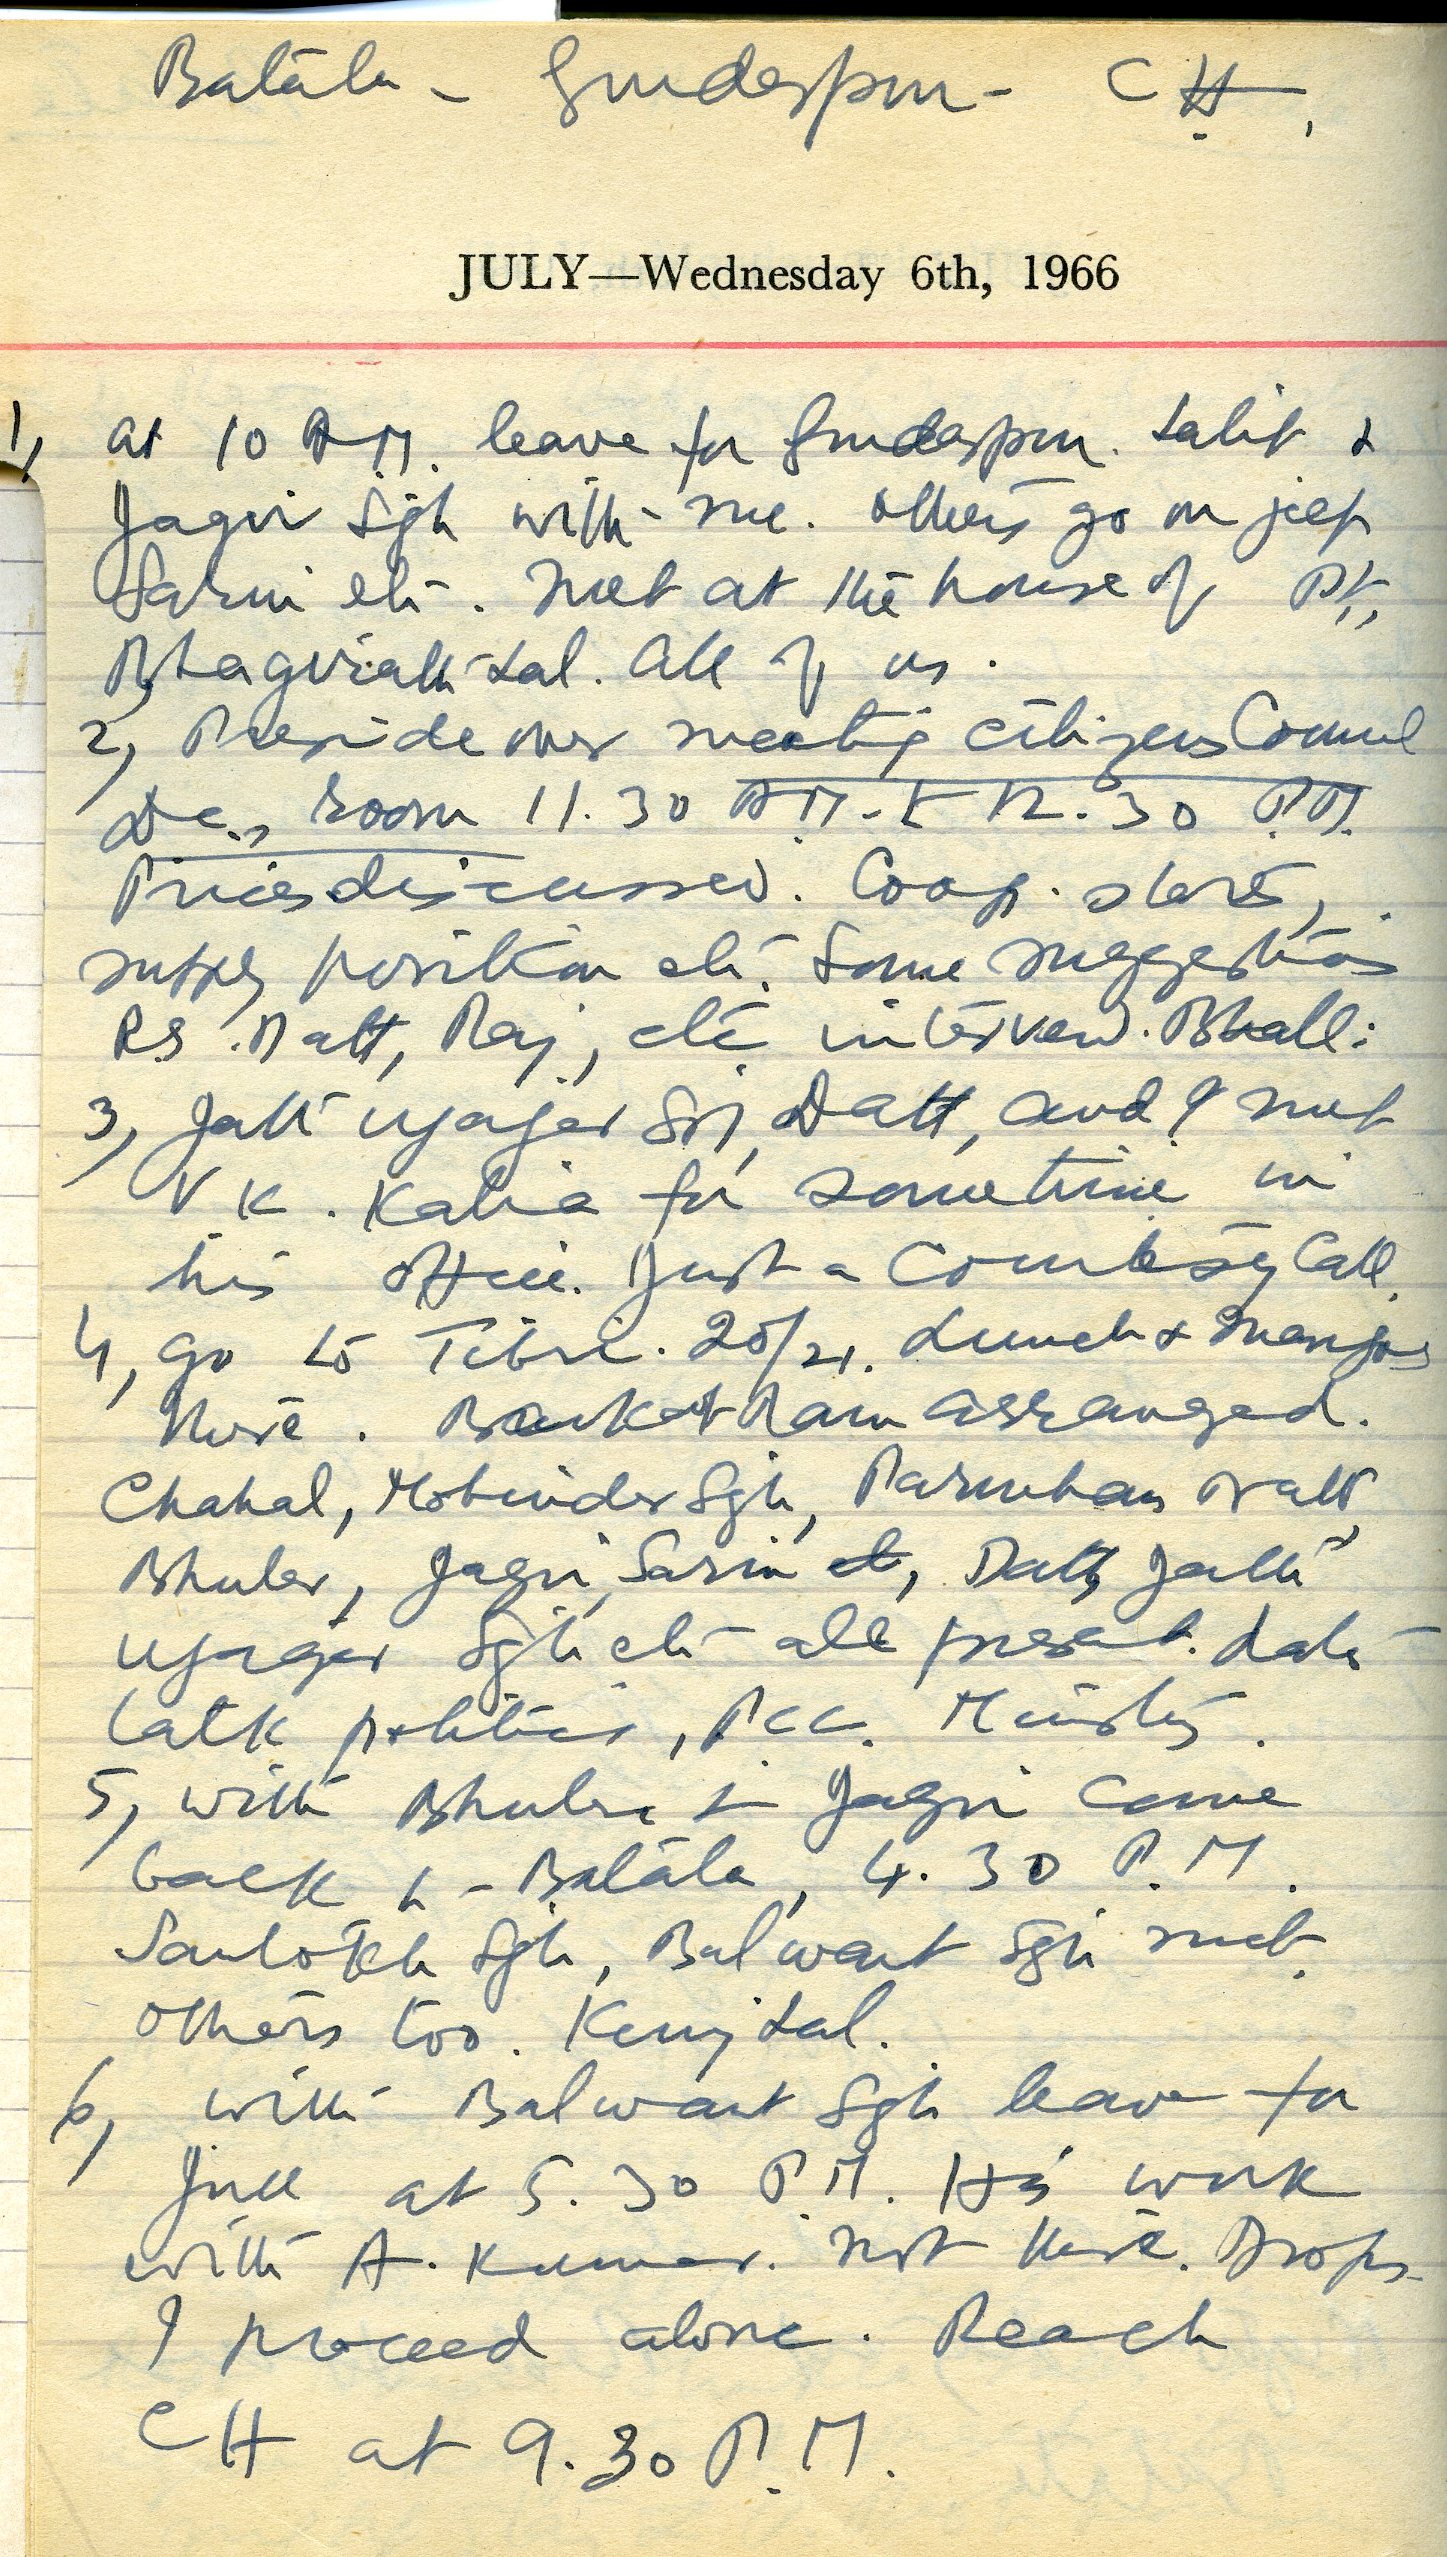 Batala - Gurdaspur - CH.
JULY—Wednesday 6th, 1966
1, at 10 A.M. leave for Gurdaspur. Lalit &
Jagir Sgh with me. Others go on jeep
Sarin etc. Meet at the house of Pt.
Bhagirath Lal. All of us.
2, Preside over meeting Citizens Council
D.C.,s room 11.30 A.M. to 12.30 P.M.
Prices discussed. Coop. stores,
supply position etc. Some suggestions
R.S. Datt, Raj, etc intervened.
3, Ujagar Sgh, Datt, and I meet
V.K. Kalia for sometime in
his office. Just a Courtesy Call.
4, go to Tibri. 20/21. Lunch & Mangoes
there. Barkat Ram arranged.
Chahal, Mohinder Sgh,
Bhuler, Jagir, Sarin etc, Datt,
Ujagar Sgh etc all present. Late
talk politics, P.C.C. Ministry.
5, with Bhuler & Jagir come
back to Batala, 4.30 P.M.
Santokh Sgh, Balwant Sgh meet.
Others too. Kunj Lal.
6, with Balwant Sgh leave for
Jull at 5.30 P.M. His work
with A. Kumar. Not there. Drops.
I proceed alone. Reach
CH at 9.30 P.M.